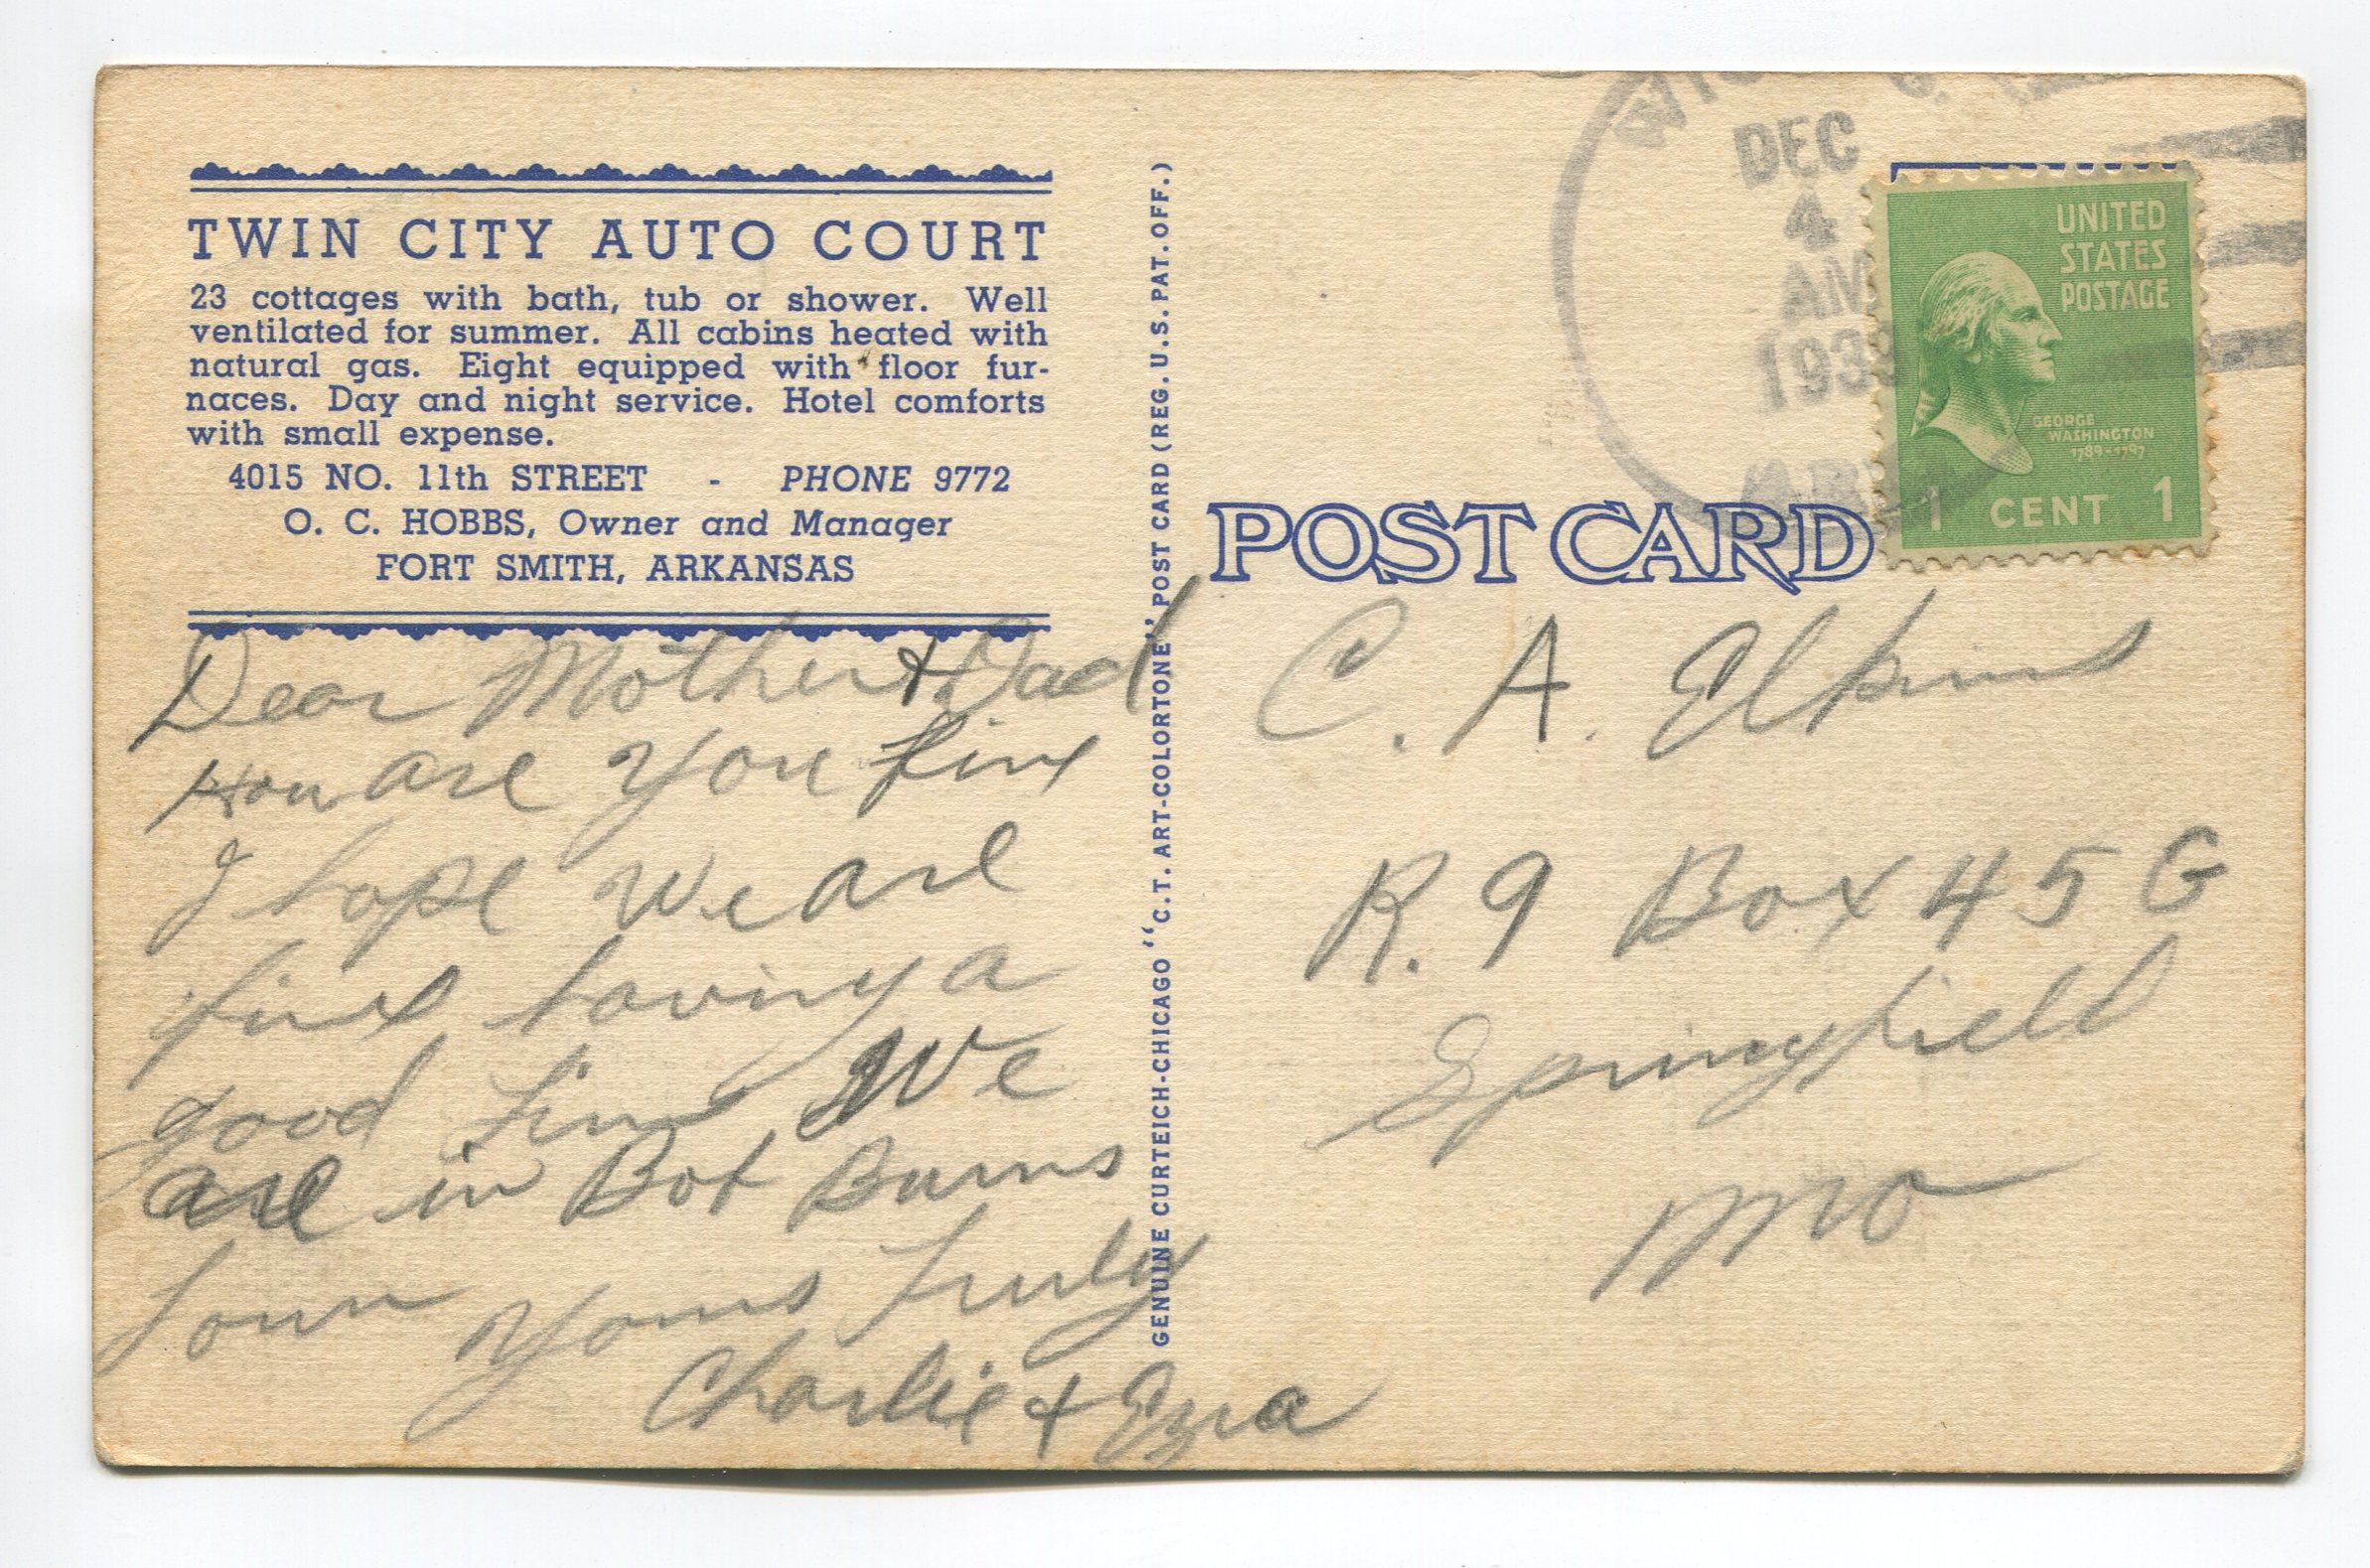 TWIN CITY AUTO COURT
23 cottages with bath, tub or shower. Well
ventilated for summer. All cabins heated with
natural gas. Eight equipped with floor fur-
naces. Day and night service. Hotel comforts
with small expense.
4015 NO. 11th STREET - PHONE 9772
O. C. HOBBS, Owner and Manager
FORT SMITH, ARKANSAS
Dear Mother + Dad
How are You fine
I hope We are
fine having a
good time We
are in Bob Burns
Town Yours Truly
Charlie + Ezra
GENUINE CURTEICH-CHICAGO "C.T. ART-COLORTONE" POST CARD (REG. U.S. PAT. OFF.)
DEC
4
AM
1939
ARK
UNITED
STATES
POSTAGE
GEORGE
WASHINGTON
1789-1797
1 CENT 1
POST CARD
C. A. Elkins
R. 9 Box 45 G
Springfield
Mo